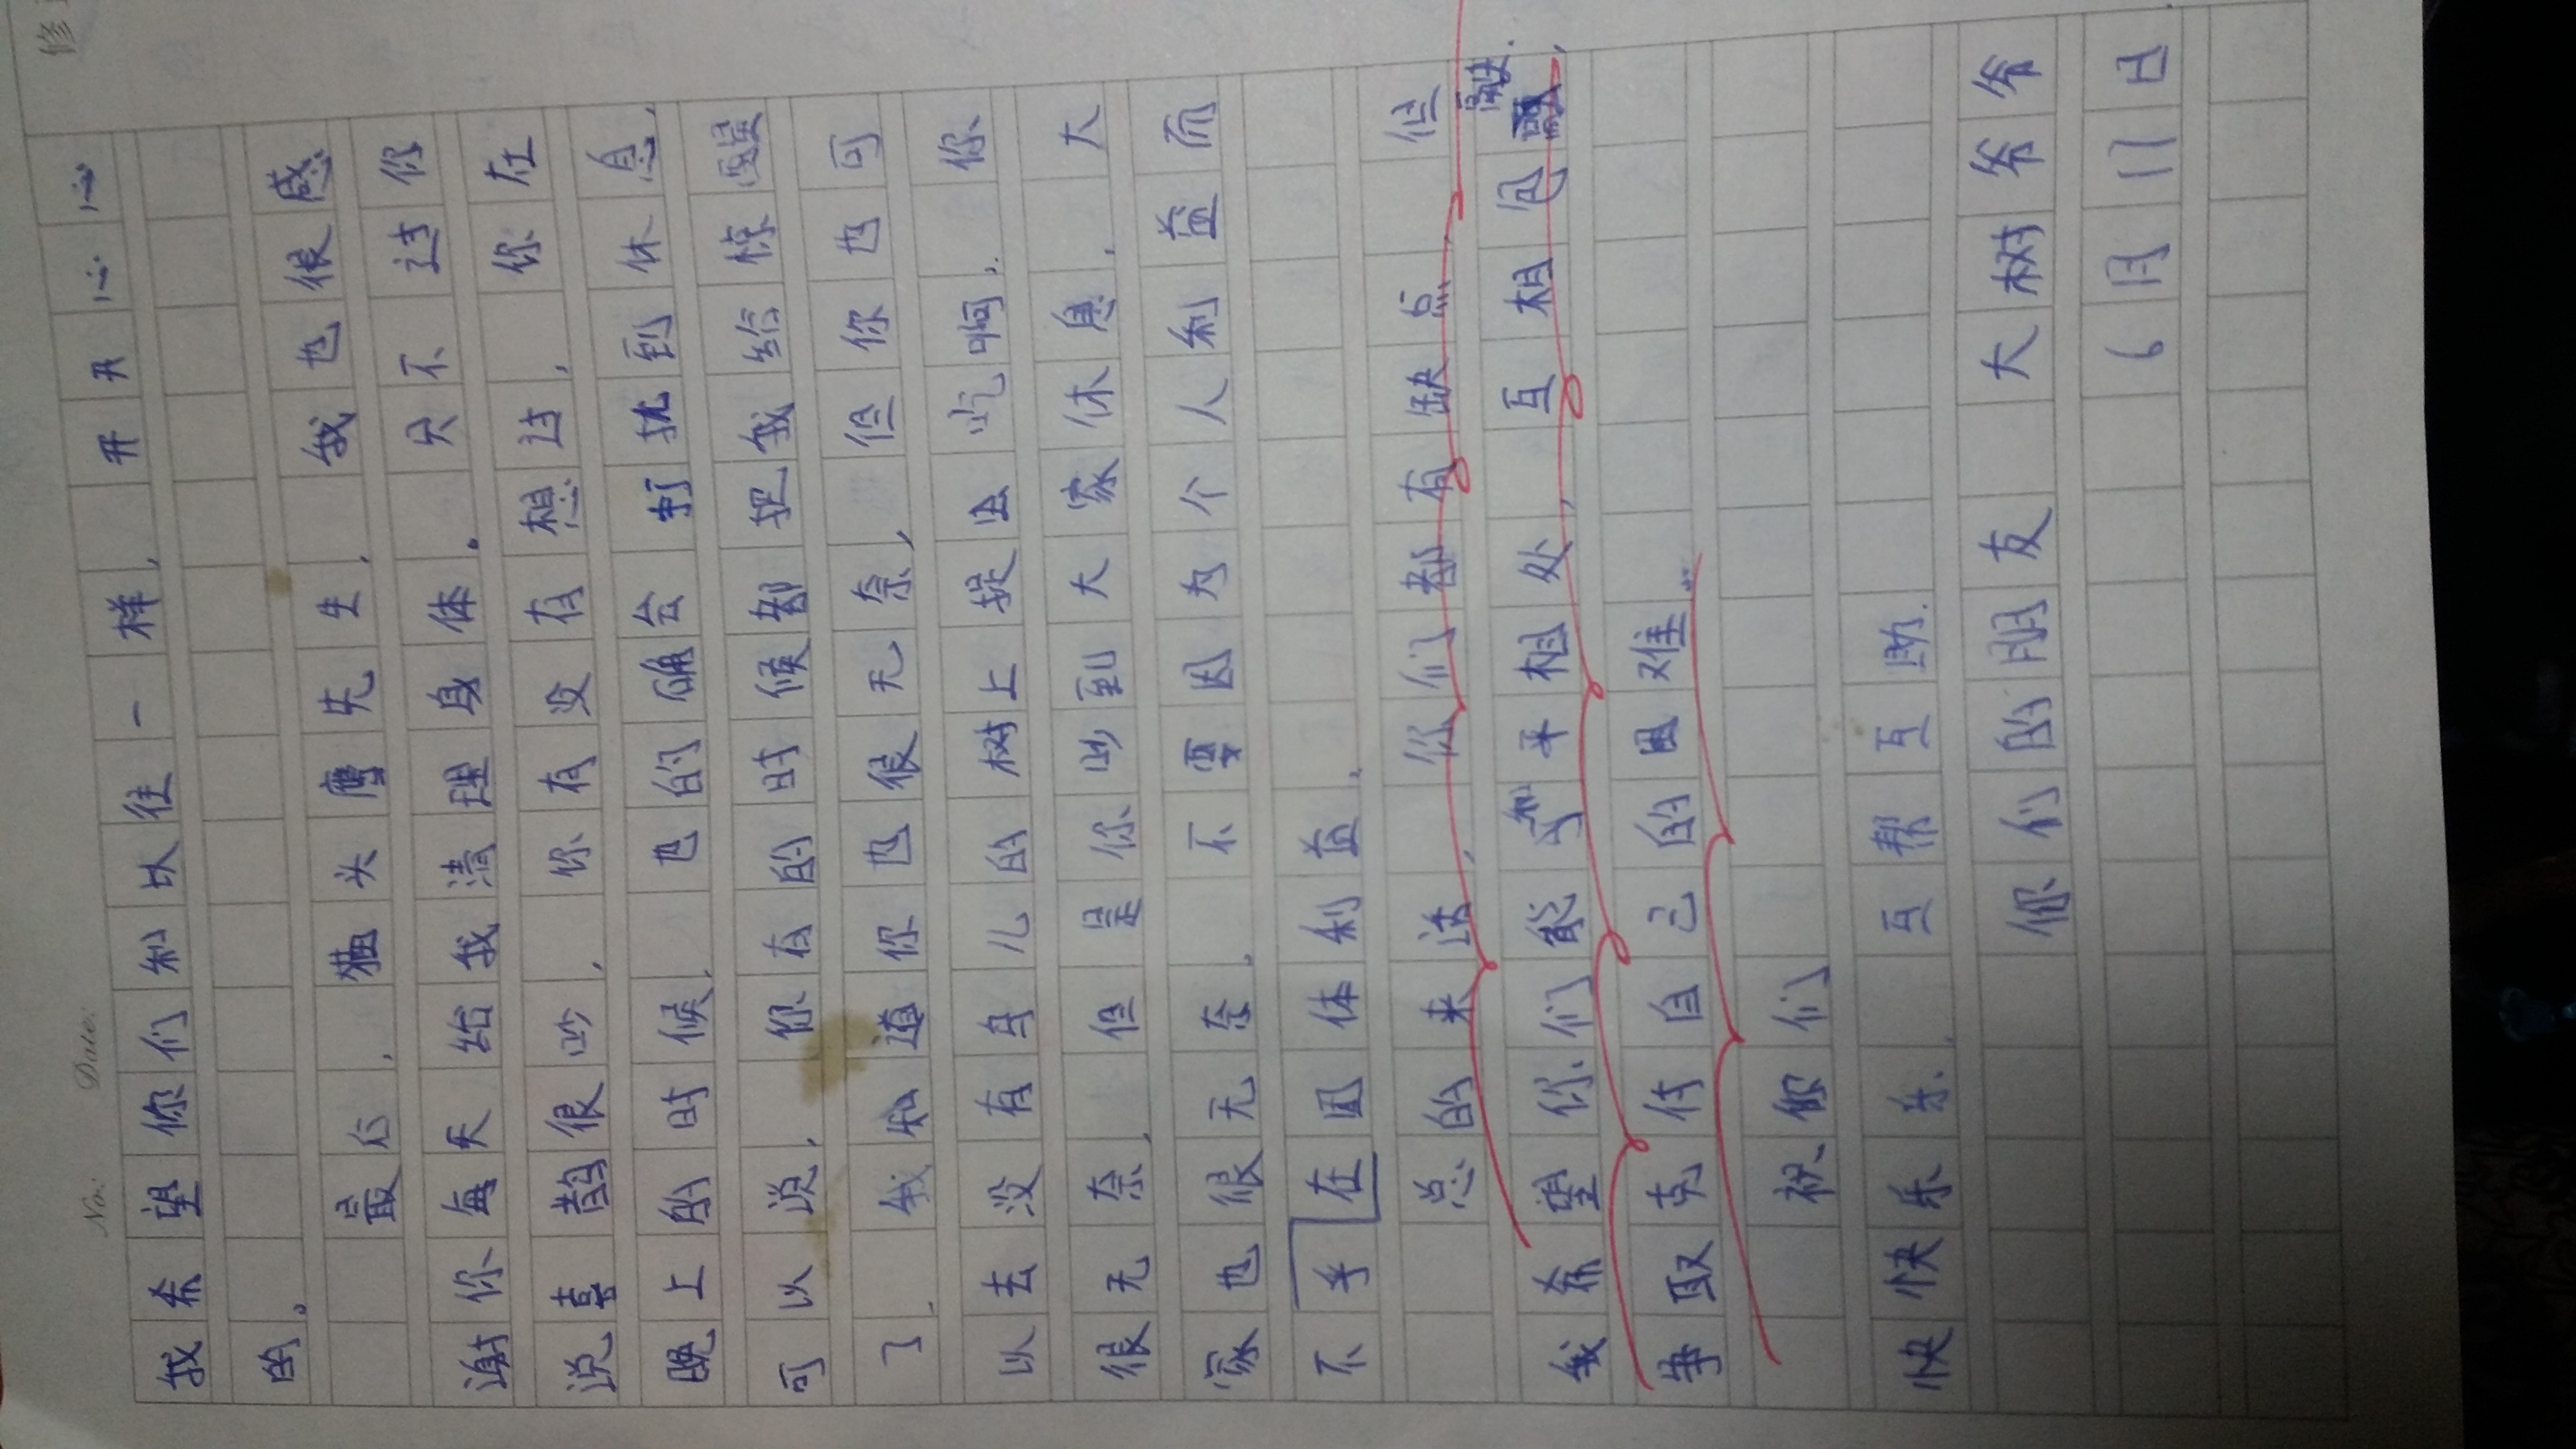 No: Date: 修
我希望你们和以往一样,开开心心
的。
最后,猫头鹰先生,我也很感
谢你每天给我清理身体。只不过你
说喜鹊很吵,你有没有想过,你在
晚上的时候,也的确会打扰到休息,
可以说,你有的时候都把我给惊醒
了,我知道你也很无奈,但你也可
以去没有鸟儿的树上捉虫吃啊,你
很无奈,但是你吵到大家休息,大
家也很无奈,不要因为个人利益而
不乎在团体利益。
总的来讲,你们都有缺点,但
我希望你们能和平相处,互相包
争取克付自己的困难。
祝你们
快快乐乐,互帮互助.
你们的朋友 大树爷爷
6月17日